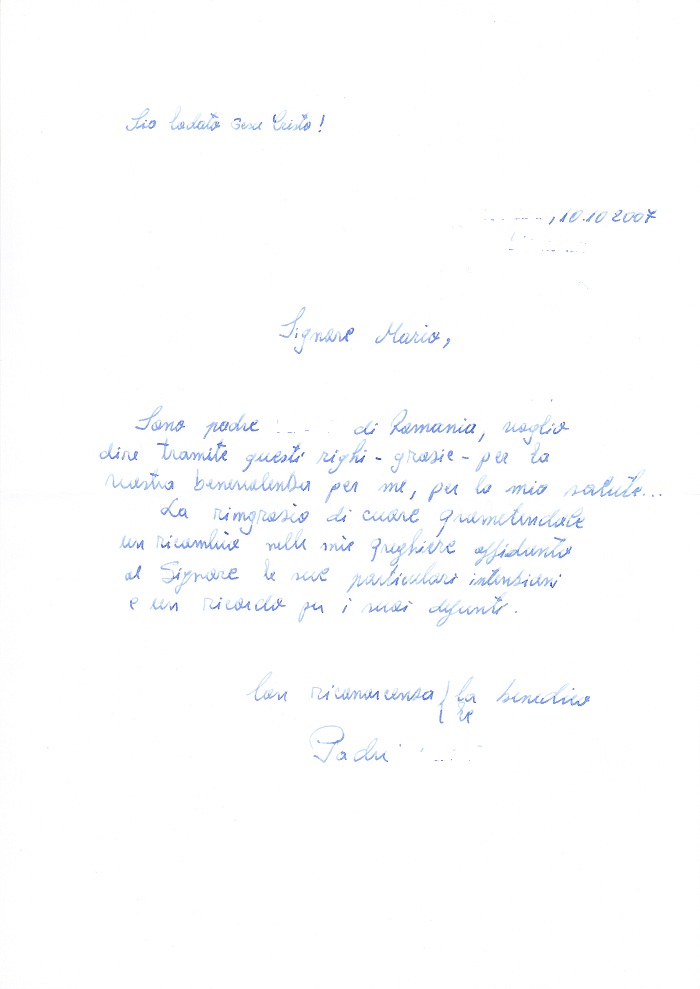 Sia lodato Gesu Cristo!
, 10.10 2007
Signore Mario,
Sono padre di Romania, voglio
dire tramite questi righi - grasie - per la
vostra benevolensa per me, per la mia salute...
La rimgrasio di cuore prometendole
un ricambio nelle mie preghiere affidando
al Signore le sue particolari intensioni
e un ricordo per i suoi defunti.
Con riconoscensa la benedico
Padre